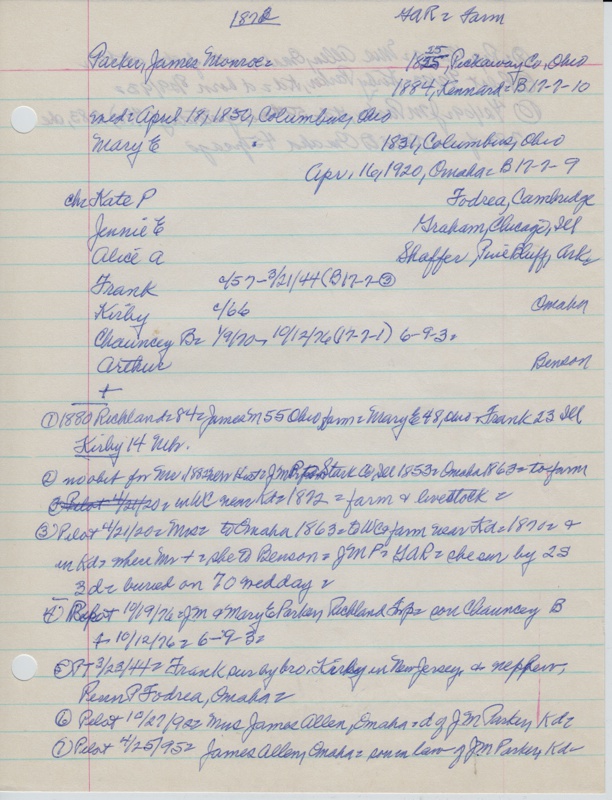 1872 GAR = Farm
Parker, James Monroe = 1825, Pickaway Co, Ohio
1884, Kennard = B 17-7-10
med = April 18, 1850, Columbus, Ohio
Mary E 1831, Columbus, Ohio
Apr. 16, 1920, Omaha = B 17-7-9
ch = Kate P Fodrea, Cambridge
Jennie E Graham, Chicago, Ill
Alice A Shaffer, Pine Bluff, Ark =
Frank c/57 - 3/21/44 (B 17-7-3)
Kirby c/66 Omaha
Chauncey B = 1/9/70 - 10/12/76 (17-7-1) 6-9-3 =
Arthur Benson
+
① 1880 Richland = 84 = James M 55 Ohio, farm = Mary E 48, Ohio + Frank 23 Ill
Kirby 14 Nebr.
② no obit for Mr = 1882 new Hist = J M P = Stark Co, Ill 1853 = Omaha 1863 = to farm
3 Pilot 4/21/20 = in WC near Kd = 1872 = farm & livestock =
③ Pilot 4/21/20 = Mrs = to Omaha 1863 = to WCo farm near Kd = 1870 = &
in Kd = when Mr + = she to Benson = J M P = GAR = she sur by 2S
3d = buried on 70 wed day =
4) Repot 10/19/76 = J M & Mary E Parker, Richland Twp = son Chauncey B
+ 10/12/76 = 6-9-3 =
⑤ PT 3/23/44 = Frank sur by bro, Kirby in New Jersey, & nephew,
Penn P Fodrea, Omaha =
⑥ Pilot 10/27/98 = Mrs James Allen, Omaha = d of J M Parker, Kd =
⑦ Pilot 4/25/95 = James Allen, Omaha = son in law of J M Parker, Kd =